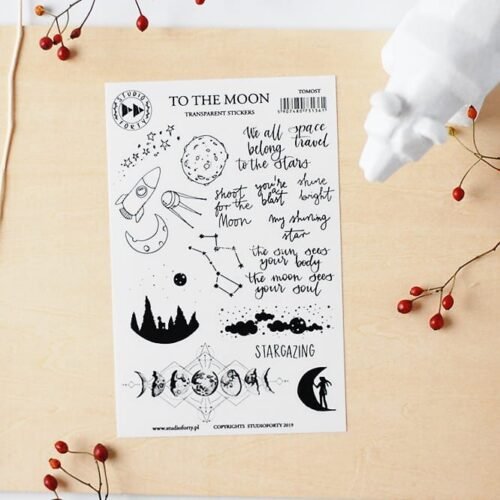 STUDIO
FORTY
TO THE MOON
TRANSPARENT STICKERS
TOMOST
We all space
belong travel
to the stars
shoot you're shine
for the a blast bright
Moon
my shining
star
the sun sees
your body
the moon sees
your soul
STARGAZING
www.studioforty.pl
COPYRIGHTS STUDIOFORTY 2019